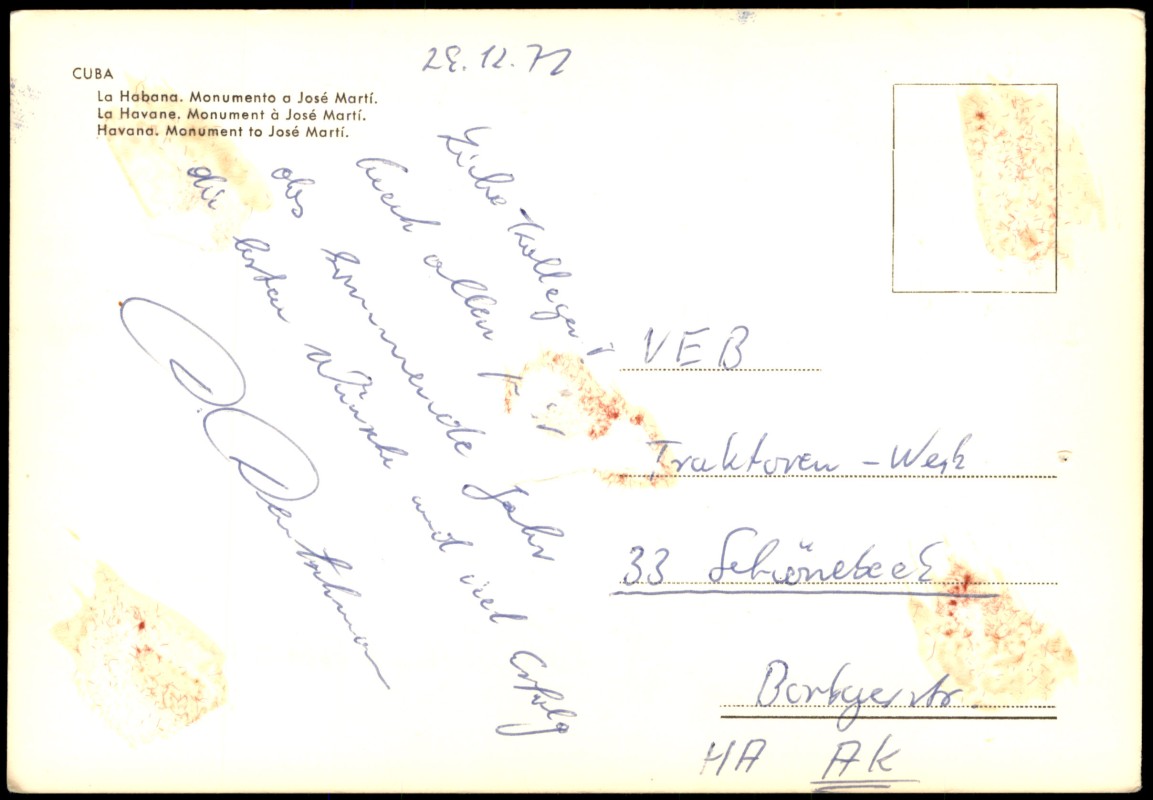 CUBA
La Habana. Monumento a José Martí.
La Havane. Monument à José Martí.
Havana. Monument to José Martí.
29.12.72
Liebe Kollegen!
Euch allen für
das kommende Jahr
die besten Wünsche und viel Erfolg
VEB
Traktoren-Werk
33 Schönebeck
Barbyerstr.
HA AK